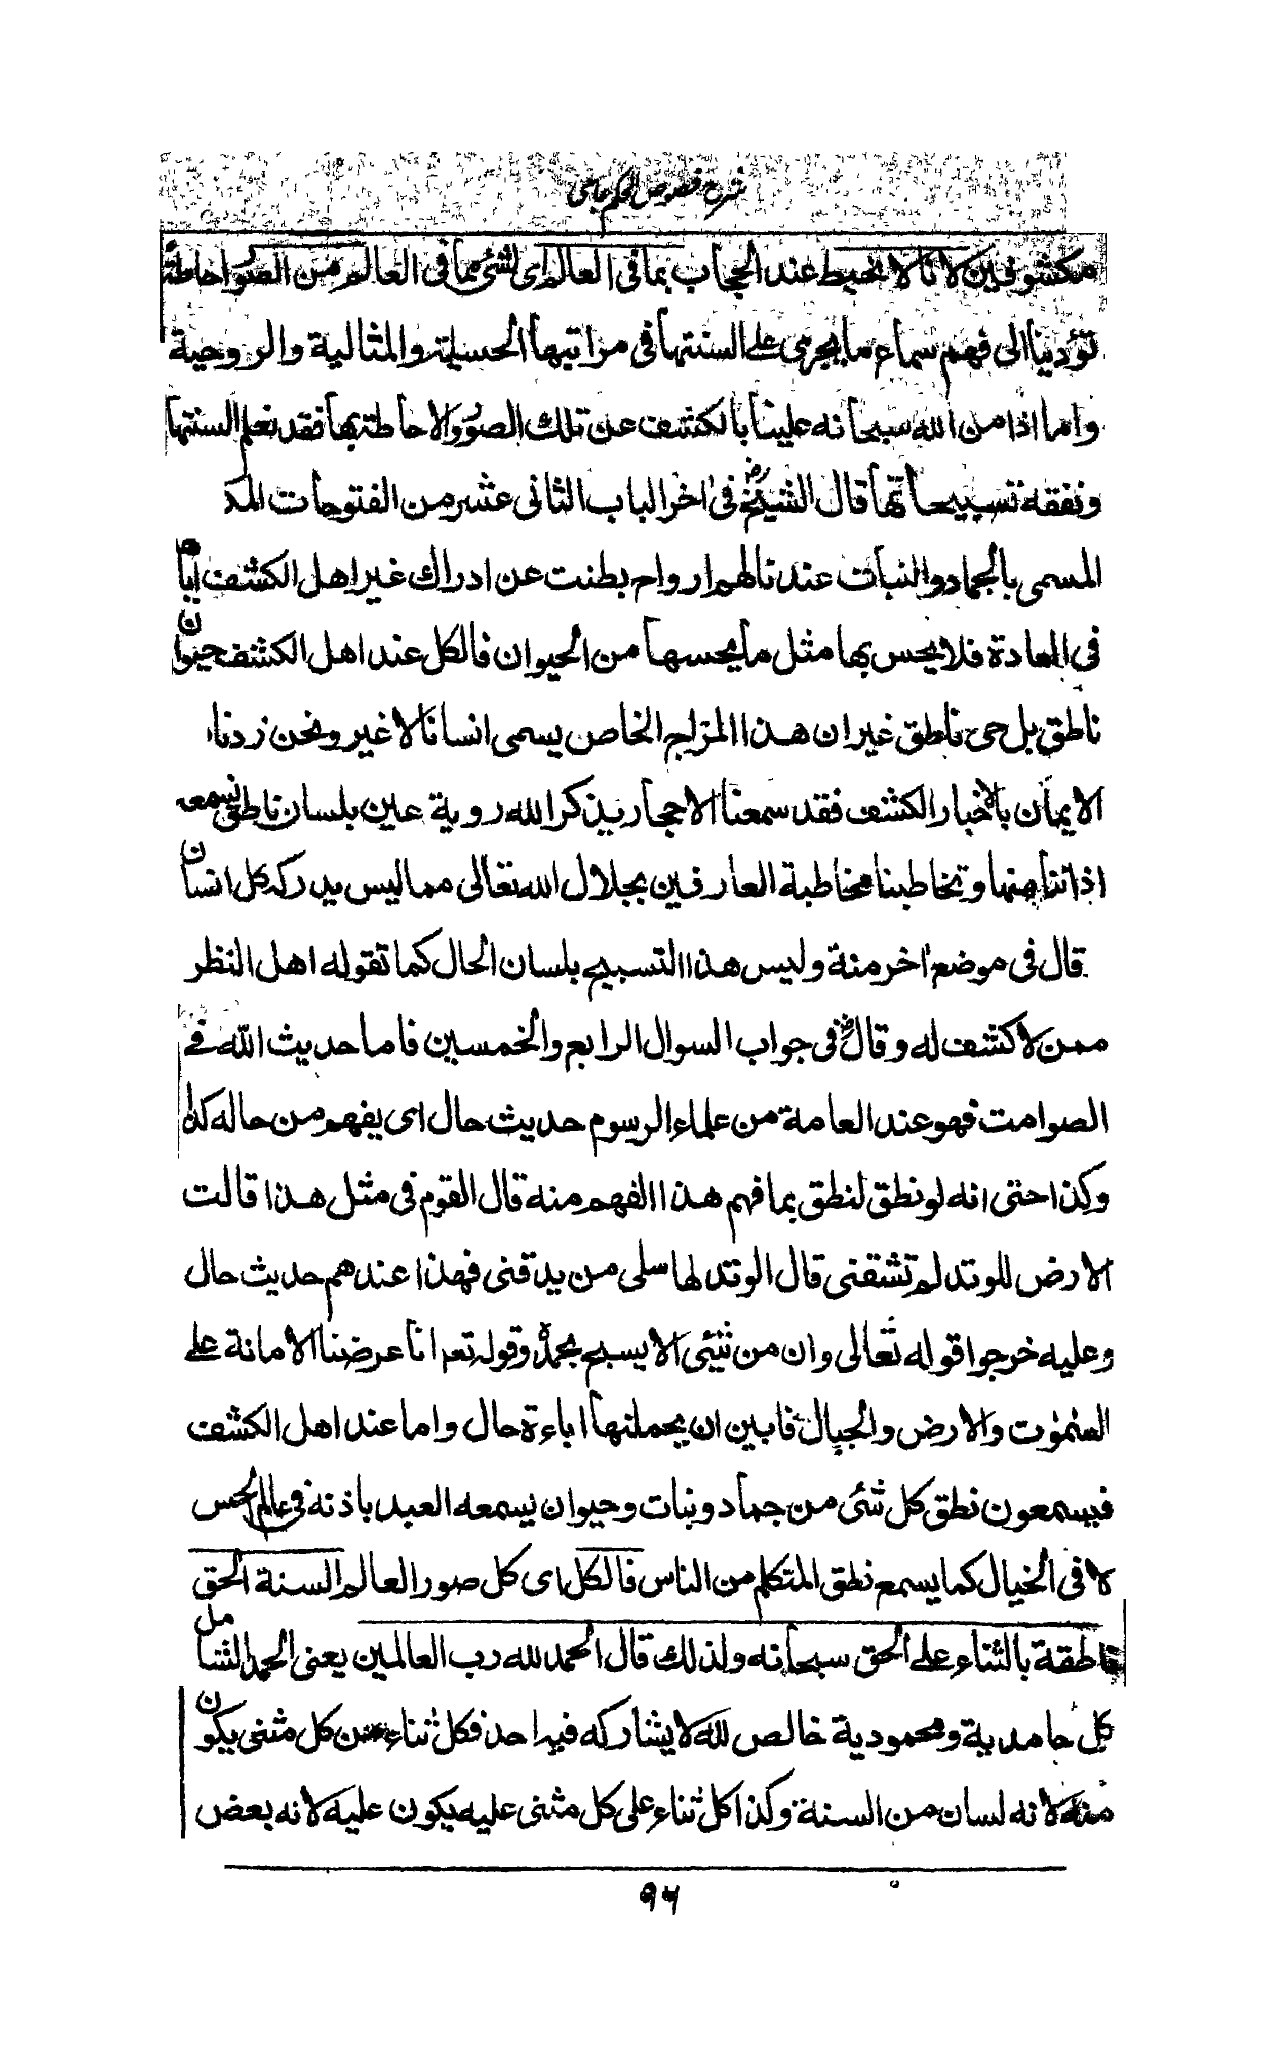 شرح فصوص الحكم جامى
مكشوفين لانا لا نحيط عند الحجاب بما فى العالم اى لشئ مما فى العالم من الصور احاطة
تؤدينا الى فهم سماء ما يجرى على السنتها فى مراتبها الحسية والمثالية والروحية
واما اذا من الله سبحانه علينا بالكشف عن تلك الصور والاحاطة بها فقد نعلم السنتها
ونفقه تسبيحاتها قال الشيخ رض فى اخر الباب الثانى عشر من الفتوحات المكـ
المسمى بالجماد والنبات عندنا لهم ارواح بطنت عن ادراك غير اهل الكشف اياها
فى العادة فلا يحس بها مثل ما يحسها من الحيوان فالكل عند اهل الكشف حيوان
ناطق بل حى ناطق غير ان هذا المزاج الخاص يسمى انسانا لا غير ونحن زدنا
الايمان بالاخبار الكشف فقد سمعنا الاحجار يذكر الله روية عين بلسان ناطق تسمعه
اذاننا منها وتخاطبنا مخاطبة العارفين بجلال الله تعالى مما ليس يدركه كل انسان
قال فى موضع اخر منة وليس هذا التسبيح بلسان الحال كما تقوله اهل النظر
ممن لا كشف له وقال رض فى جواب السوال الرابع والخمسين فاما حديث الله فے
الصوامت فهو عند العامة من علماء الرسوم حديث حال اى يفهم من حاله كذا
وكذا حتى انه لو نطق لنطق بما فهم هذا الفهم منه قال القوم فى مثل هذا قالت
الارض للوتد لم تشقنى قال الوتد لها سلى من يدقنى فهذا عندهم حديث حال
وعليه خرجوا قوله تعالى وان من شئى الا يسبح بحمده وقوله تعه انا عرضنا الامانة على
السموت والارض والجبال فابين ان يحملنها اباءة حال واما عند اهل الكشف
فيسمعون نطق كل شئى من جماد ونبات وحيوان يسمعه العبد باذنه فى عالم الحس
لا فى الخيال كما يسمع نطق المتكلم من الناس فالكل اى كل صور العالم السنة الحق
ناطقة بالثناء على الحق سبحانه ولذلك قال الحمد لله رب العالمين يعنى الحمد الشامل
كل حامدية ومحمودية خالص لله لا يشاركه فيه احد فكل ثناء من كل مثنى يكون
منه لانه لسان من السنة وكذا كل ثناء على كل مثنى عليه يكون عليه لانه بعض
٩٦